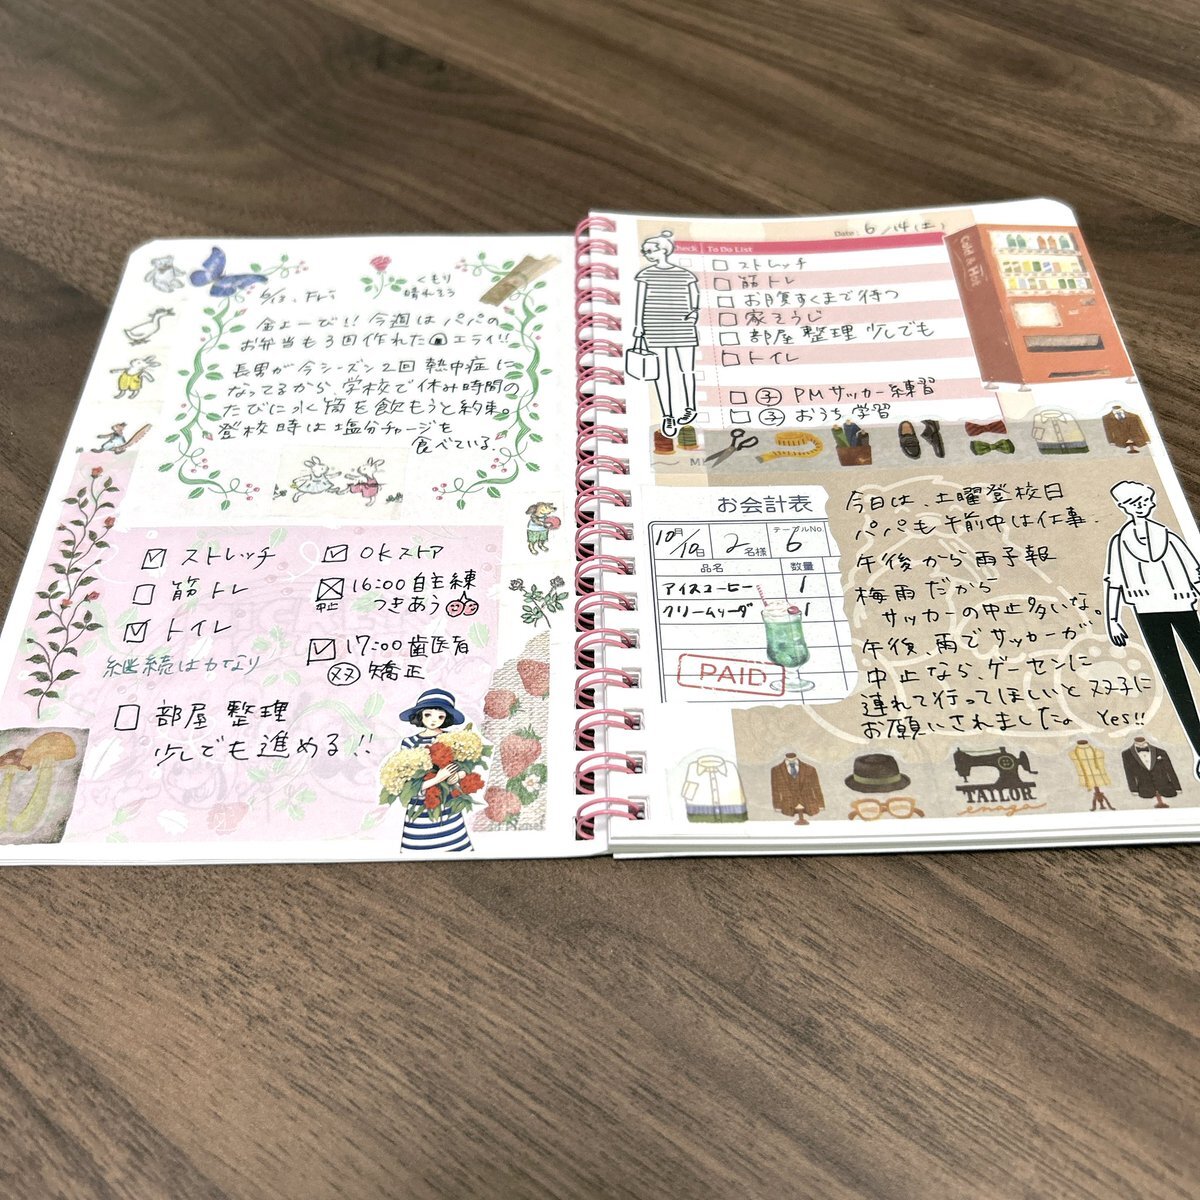 6/13, Fri
くもり
晴れそう
金よーび!! 今週はパパの
お弁当も3回作れた🍙エライ!!
長男が今シーズン2回熱中症に
なってるから学校で休み時間の
たびに水筒を飲もうと約束。
登校時は塩分チャージを
食べている。
☑ ストレッチ
□ 筋トレ
☑ トイレ
継続は力なり
□ 部屋整理
少しでも進める!!
☑ OKストア
☒ 16:00 自主練
中止 つきあう
☑ 17:00 歯医者
矯正
Date: 6/14(土)
Check To Do List
□ ストレッチ
□ 筋トレ
□ お腹すくまで待つ
□ 家そうじ
□ 部屋整理 少しでも
□ トイレ
□ ③ PMサッカー練習
□ ③ おうち学習
Cold & Hot
お会計表
10月/10日 2名様 テーブルNo. 6
品名 数量
アイスコーヒー 1
クリームソーダ 1
PAID
今日は、土曜登校日
パパも午前中は仕事.
午後から雨予報
梅雨だから
サッカーの中止多いな。
午後、雨でサッカーが
中止なら、ゲーセンに
連れて行ってほしいと双子に
お願いされました。 Yes!!
TAILOR